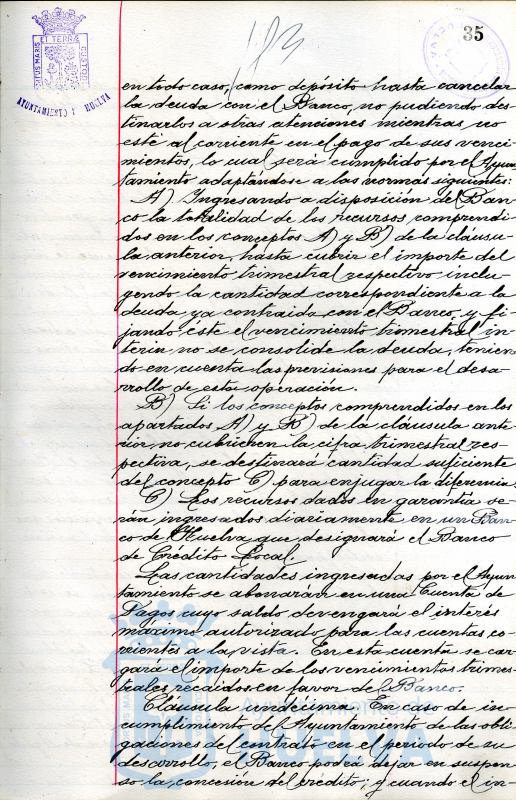 35
PORTUS MARIS ET TERRÆ CUSTODIA
AYUNTAMIENTO HUELVA
en todo caso, como depósito hasta cancelar
la deuda con el Banco, no pudiendo des-
tinarlos a otras atenciones mientras no
esté al corriente en el pago de sus venci-
mientos, lo cual será cumplido por el Ayun-
tamiento adaptándose a las normas siguientes:
A) Ingresando a disposición del Ban-
co la totalidad de los recursos comprendi-
dos en los conceptos A) y B) de la cláusu-
la anterior, hasta cubrir el importe del
vencimiento trimestral respectivo inclu-
yendo la cantidad correspondiente a la
deuda ya contraida con el Banco, y fi-
jando éste el vencimiento trimestral in-
terin no se consolide la deuda, tenien-
do en cuenta las previsiones para el desa-
rrollo de esta operación.
B) Si los conceptos comprendidos en los
apartados A) y B) de la cláusula ante-
rior, no cubriesen la cifra trimestral res-
pectiva, se destinará cantidad suficiente
del concepto C) para enjugar la diferencia.
C) Los recursos dados en garantía se-
rán ingresados diariamente en un Ban-
co de Huelva que designará el Banco
de Crédito Local.
Las cantidades ingresadas por el Ayun-
tamiento se abonarán en una Cuenta de
Pagos cuyo saldo devengará el interés
máximo autorizado para las cuentas co-
rrientes a la vista. En esta cuenta se car-
gará el importe de los vencimientos trimes-
trales recaidos en favor del Banco.
Cláusula undécima. En caso de in-
cumplimiento del Ayuntamiento de las obli-
gaciones del contrato en el periodo de su
desarrollo, el Banco podrá dejar en suspen-
so la concesión del crédito; y cuando el in-
Ayuntamiento
HUELVA